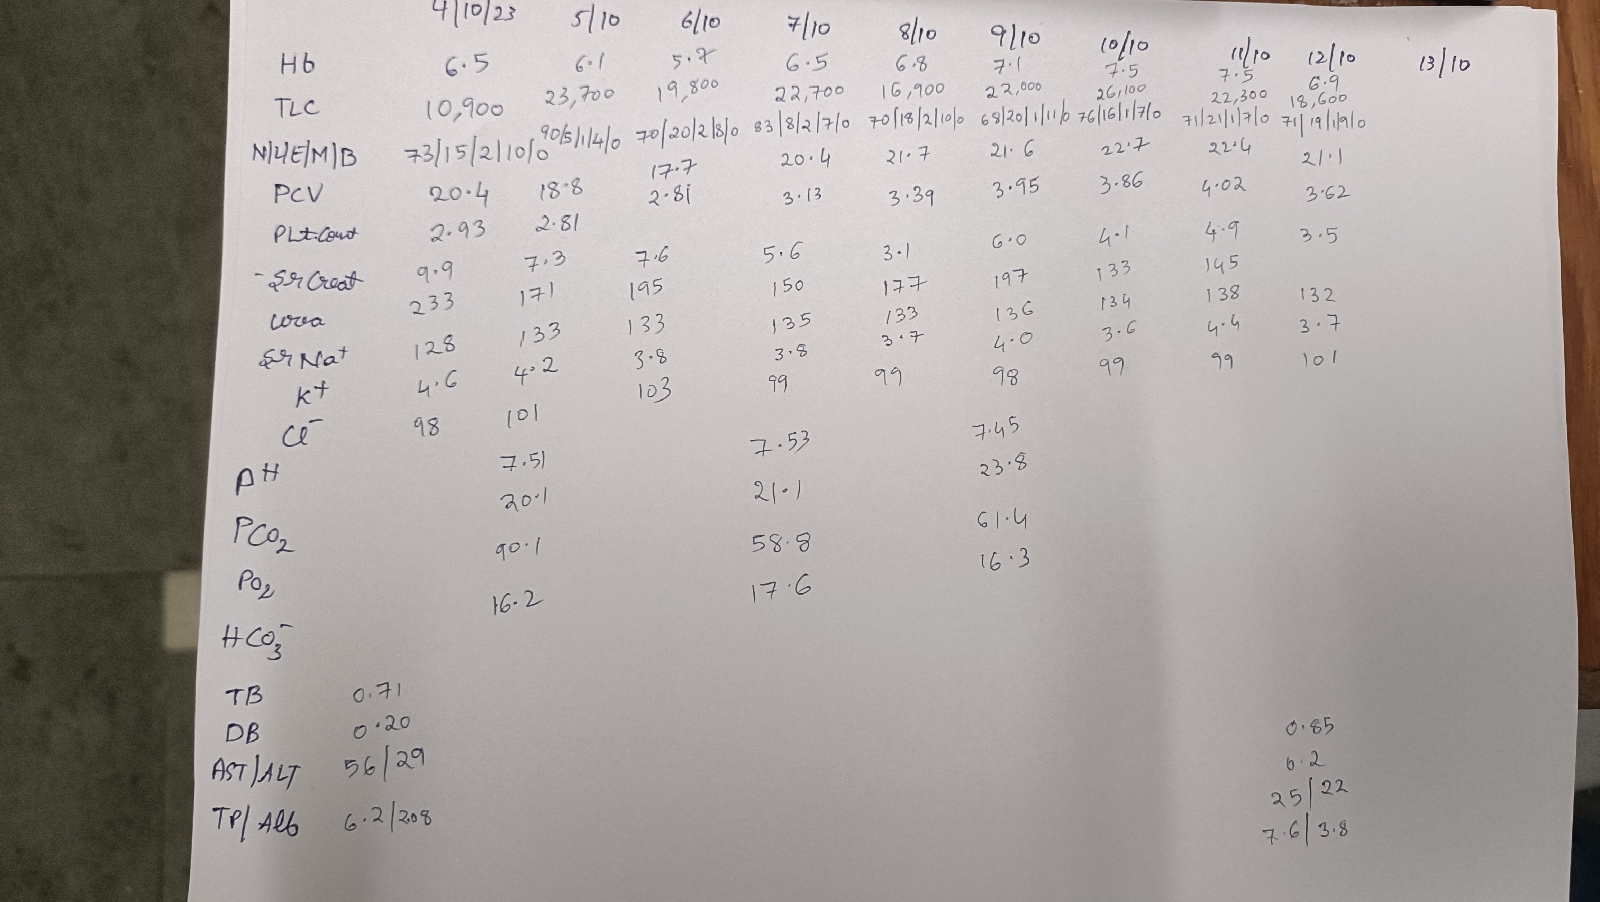 4/10/23 5/10 6/10 7/10 8/10 9/10 10/10 11/10 12/10 13/10
Hb 6.5 6.1 5.7 6.5 6.8 7.1 7.5 7.5 6.9
TLC 10,900 23,700 19,800 22,700 16,900 22,000 26,100 22,300 18,600
N/L/E/M/B 73/15/2/10/0 90/5/1/4/0 70/20/2/8/0 83/8/2/7/0 70/18/2/10/0 68/20/1/11/0 76/16/1/7/0 71/21/1/7/0 71/19/1/9/0
PCV 20.4 18.8 17.7 20.4 21.7 21.6 22.7 22.4 21.1
PLt.Count 2.93 2.81 2.81 3.13 3.39 3.95 3.86 4.02 3.62
- Sr Creat 9.9 7.3 7.6 5.6 3.1 6.0 4.1 4.9 3.5
urea 233 171 195 150 177 197 133 145
Sr Na+ 128 133 133 135 133 136 134 138 132
K+ 4.6 4.2 3.8 3.8 3.7 4.0 3.6 4.4 3.7
Cl- 98 101 103 99 99 98 99 99 101
pH 7.51 7.53 7.45
PCO2 20.1 21.1 23.8
PO2 90.1 58.8 61.4
HCO3- 16.2 17.6 16.3
TB 0.71 0.85
DB 0.20 0.2
AST/ALT 56/29 25/22
TP/Alb 6.2/2.08 7.6/3.8